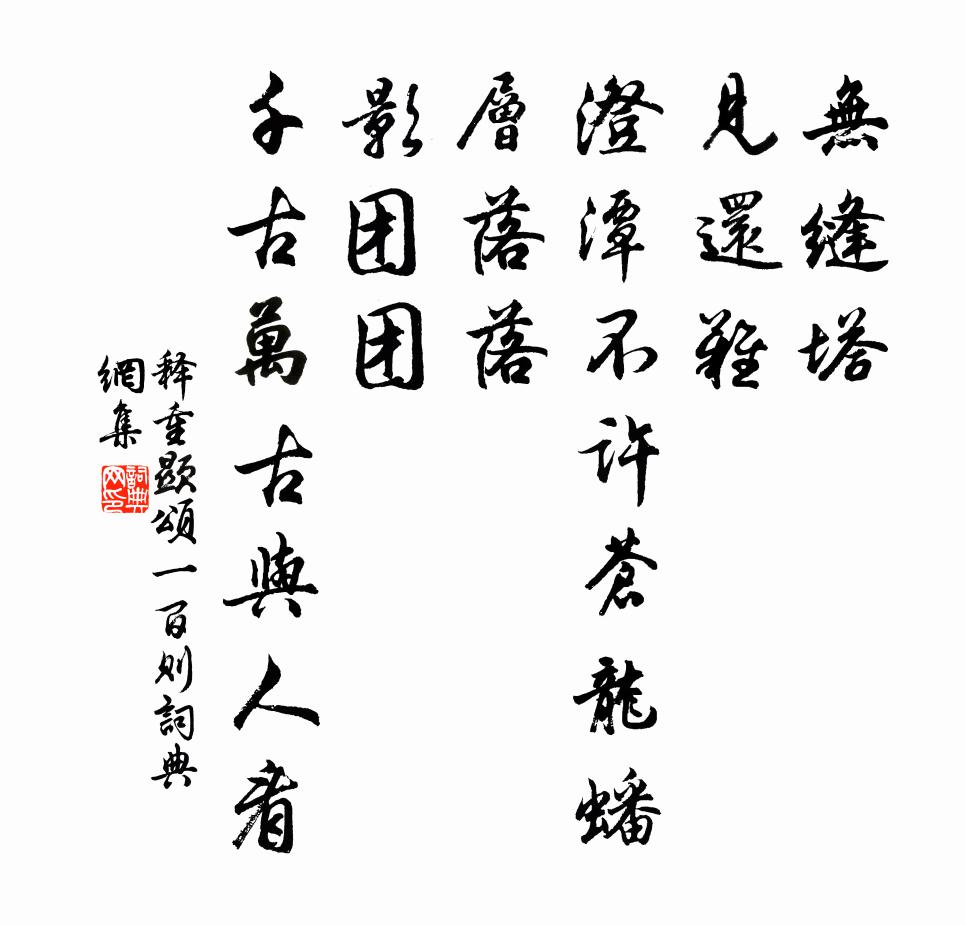 無縫塔
見還難
澄潭不許蒼龍蟠
層落落
影团团
千古萬古與人看
释重顯頌一百则詞典
網集
詞典
网印